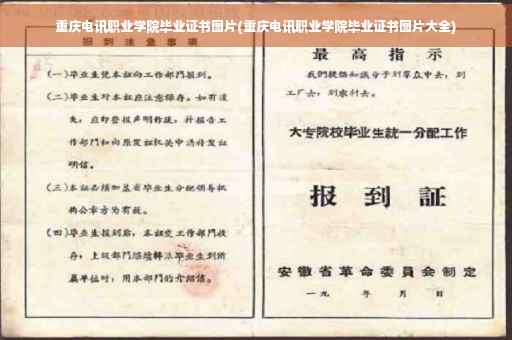 重庆电讯职业学院毕业证书图片(重庆电讯职业学院毕业证书图片大全)
报到注意事项
(一)毕业生凭本証向工作部門报到。
(二)毕业生对本証应注意保存。如有遺
失,应即登报声明作废,并报告工
作部門和向原发証机关申請补发証
明信。
(三)本証必须加盖省毕业生分配领导机
构公章方为有效。
(四)毕业生报到后,本証交工作部門收
存,上级部門繼續轉派毕业生到所
属单位时,用本部門的介绍信。
最高指示
我們提倡知識分子到羣众中去,到
工厂去,到农村去。
大专院校毕业生統一分配工作
报到証
安徽省革命委員会制定
一九 年 月 日